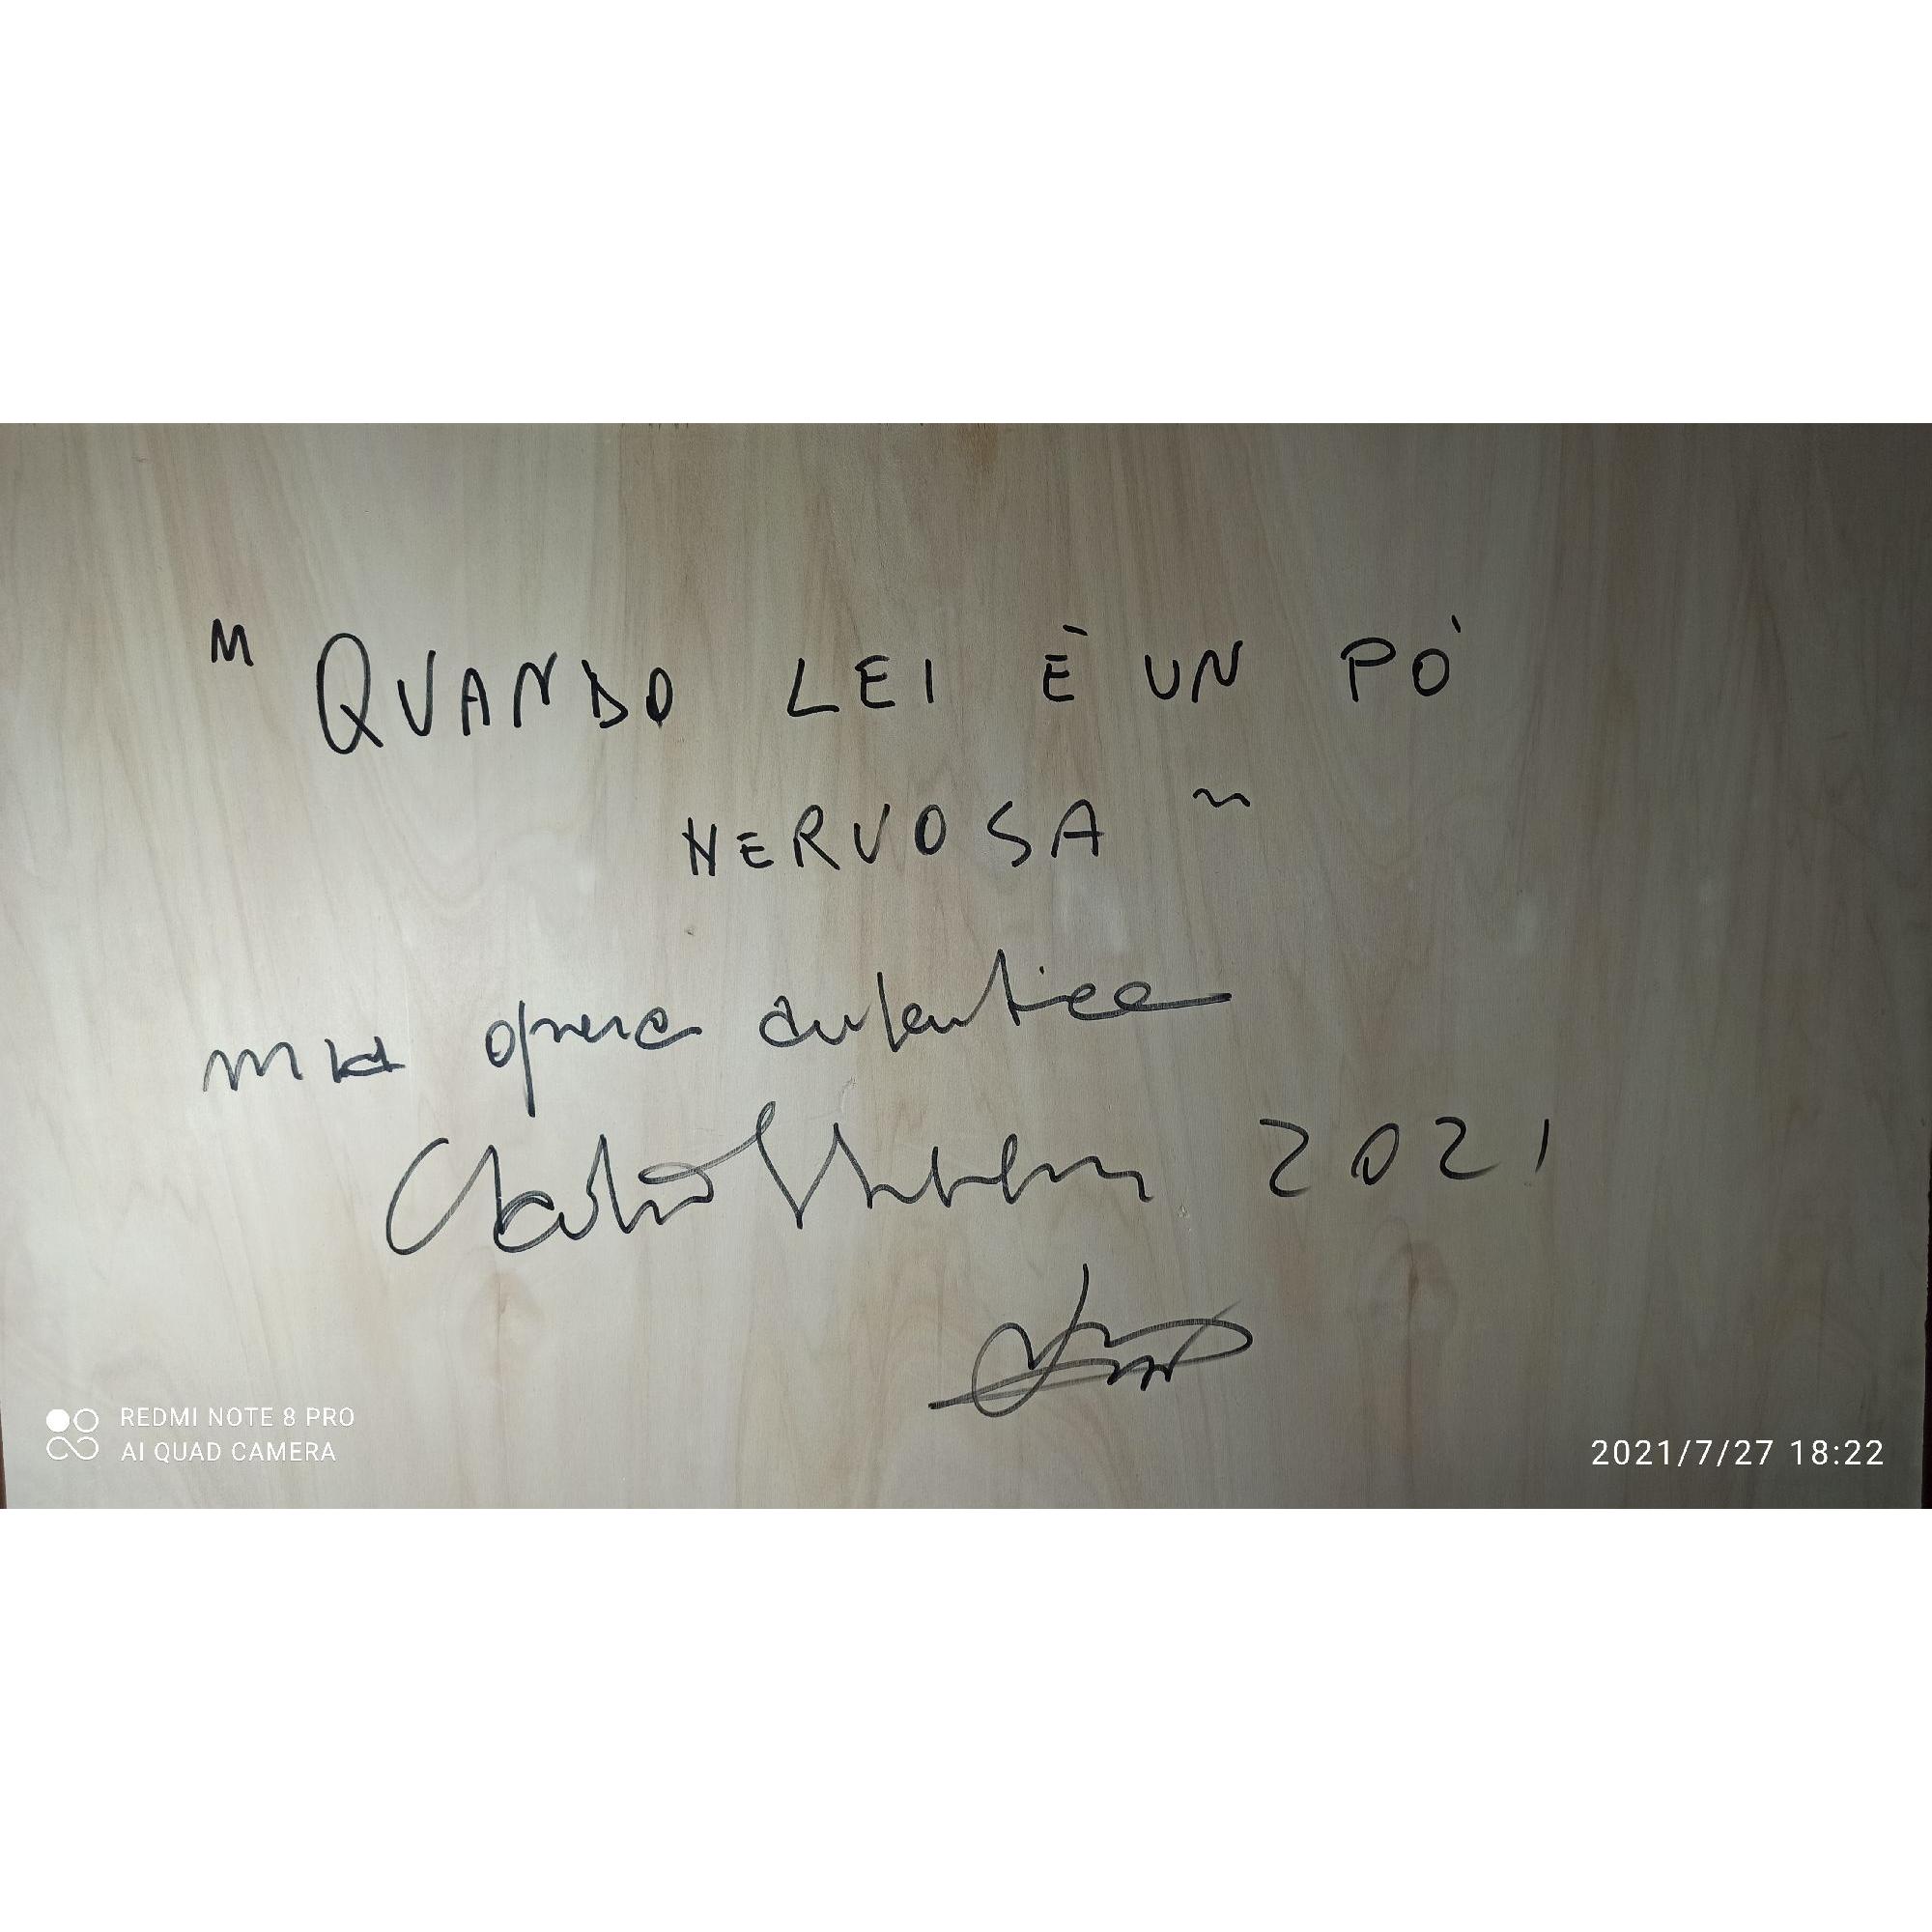 "QUANDO LEI È UN PÒ
NERVOSA"
mia opera autentica
2021
REDMI NOTE 8 PRO
AI QUAD CAMERA
2021/7/27 18:22